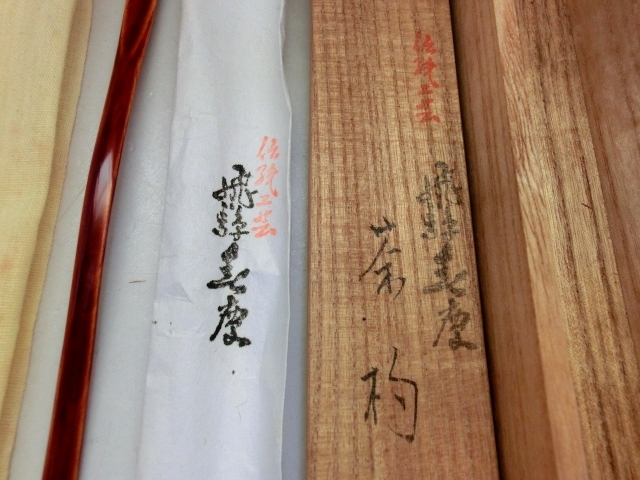 伝統工芸
飛騨春慶
伝統工芸
飛騨春慶
茶杓